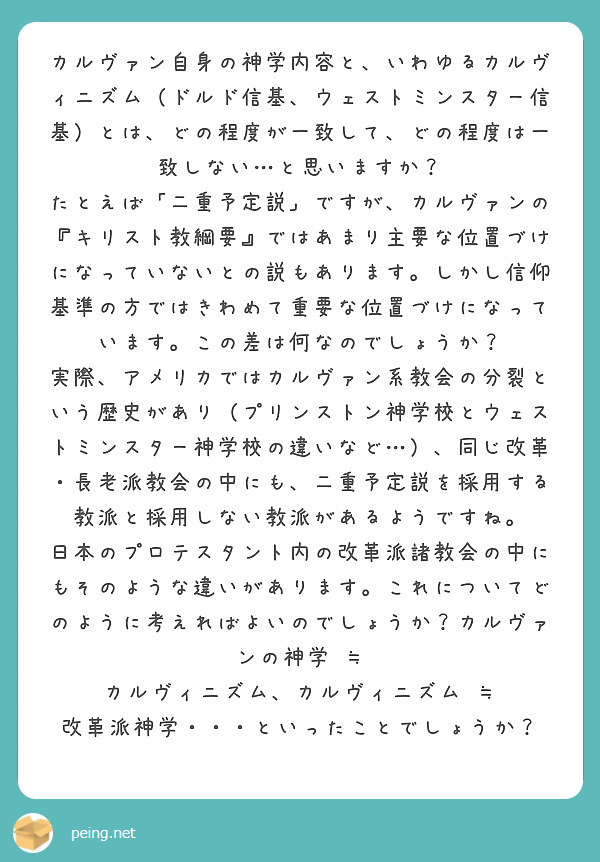 カルヴァン自身の神学内容と、いわゆるカルヴ
ィニズム（ドルド信基、ウェストミンスター信
基）とは、どの程度が一致して、どの程度は一
致しない…と思いますか？
たとえば「二重予定説」ですが、カルヴァンの
『キリスト教綱要』ではあまり主要な位置づけ
になっていないとの説もあります。しかし信仰
基準の方ではきわめて重要な位置づけになって
います。この差は何なのでしょうか？
実際、アメリカではカルヴァン系教会の分裂と
いう歴史があり（プリンストン神学校とウェス
トミンスター神学校の違いなど…）、同じ改革
・長老派教会の中にも、二重予定説を採用する
教派と採用しない教派があるようですね。
日本のプロテスタント内の改革派諸教会の中に
もそのような違いがあります。これについてど
のように考えればよいのでしょうか？カルヴァ
ンの神学 ≒
カルヴィニズム、カルヴィニズム ≒
改革派神学・・・といったことでしょうか？
peing.net